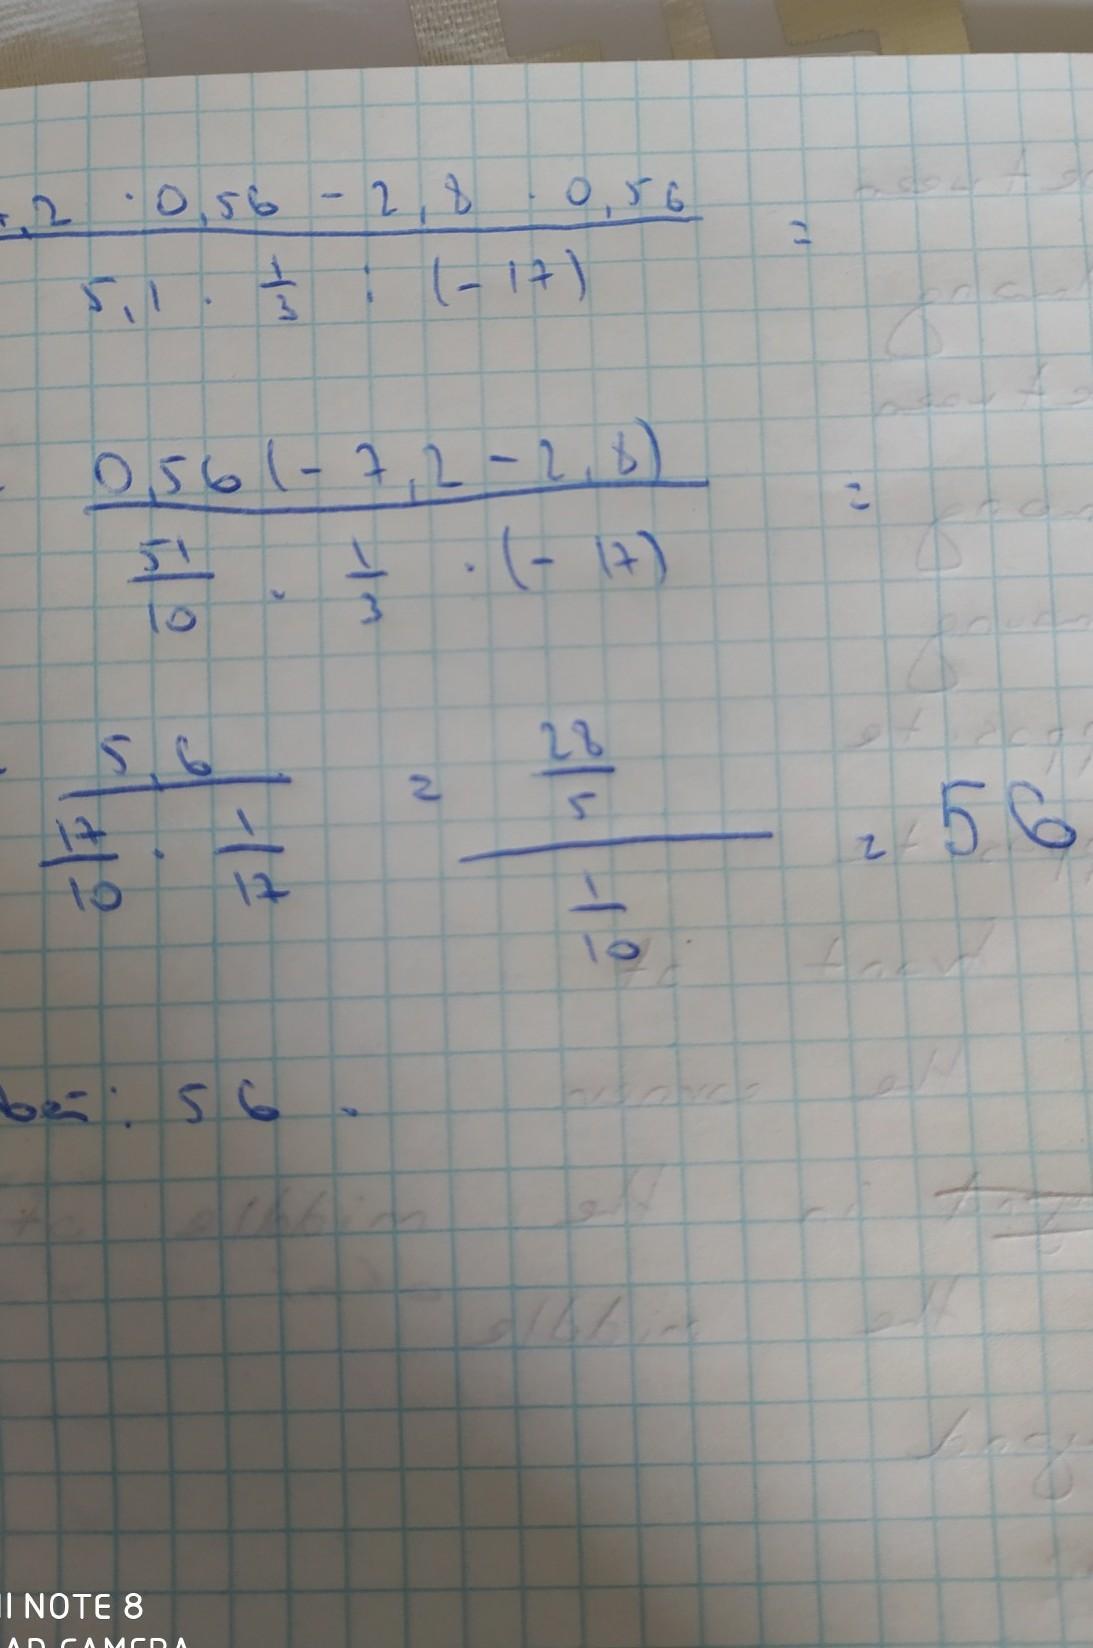 ,2 · 0,56 - 2,8 · 0,56 =
5,1 · 1/3 : (- 17)
0,56 (- 7,2 - 2,8) =
51/10 · 1/3 · (- 17)
5,6 = 28/5 = 56
17/10 · 1/17 1/10
: 56.
NOTE 8
CAMERA